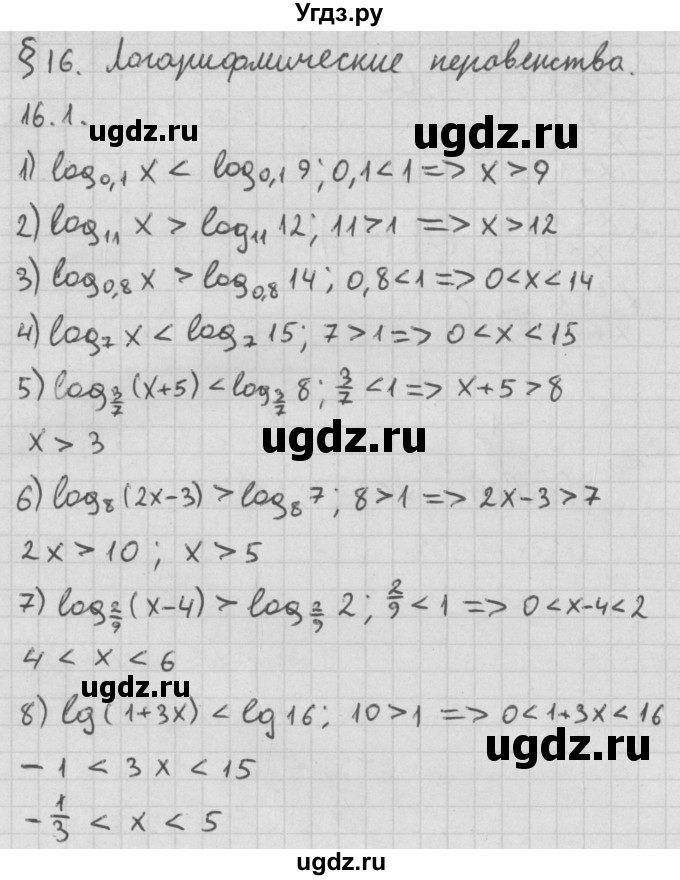 Угдз.ру
§ 16. Логарифмические неравенства.
16.1.
ugdz.ru
1) log₀,₁ x < log₀,₁ 9; 0,1 < 1 => x > 9
2) log₁₁ x > log₁₁ 12; 11 > 1 => x > 12
3) log₀,₈ x > log₀,₈ 14; 0,8 < 1 => 0 < x < 14
4) log₇ x < log₇ 15; 7 > 1 => 0 < x < 15
5) log_{3/7} (x+5) < log_{3/7} 8; 3/7 < 1 => x+5 > 8
x > 3
ugdz.ru
6) log₈ (2x-3) > log₈ 7; 8 > 1 => 2x-3 > 7
2x > 10; x > 5
7) log_{2/9} (x-4) > log_{2/9} 2; 2/9 < 1 => 0 < x-4 < 2
4 < x < 6
ugdz.ru
8) lg(1+3x) < lg 16; 10 > 1 => 0 < 1+3x < 16
ugdz.ru
-1 < 3x < 15
-1/3 < x < 5
ugdz.ru